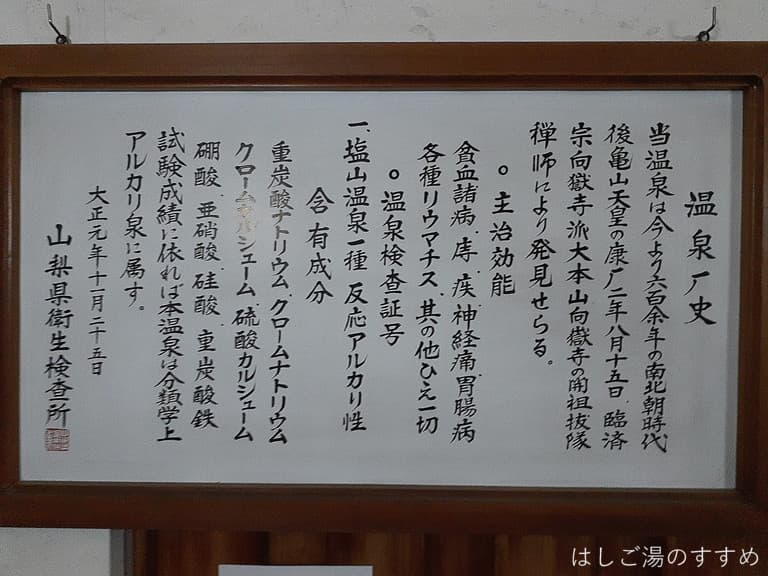 温泉厂史
当温泉は今より六百余年の南北朝時代
後亀山天皇の康厂二年八月十五日、臨済
宗向嶽寺派大本山向嶽寺の開祖抜隊
禅師により発見せらる。
○主治効能
貧血諸病、痔、疾、神経痛、胃腸病
各種リウマチス、其の他ひえ一切
○温泉検査証号
一、塩山温泉一種 反応アルカリ性
含有成分
重炭酸ナトリウム、クロームナトリウム
クロームカルシューム、硫酸カルシューム
硼酸、亜硝酸、硅酸、重炭酸鉄
試験成績に依れば本温泉は分類学上
アルカリ泉に属す。
大正元年十一月二十五日
山梨県衛生検査所
はしご湯のすすめ